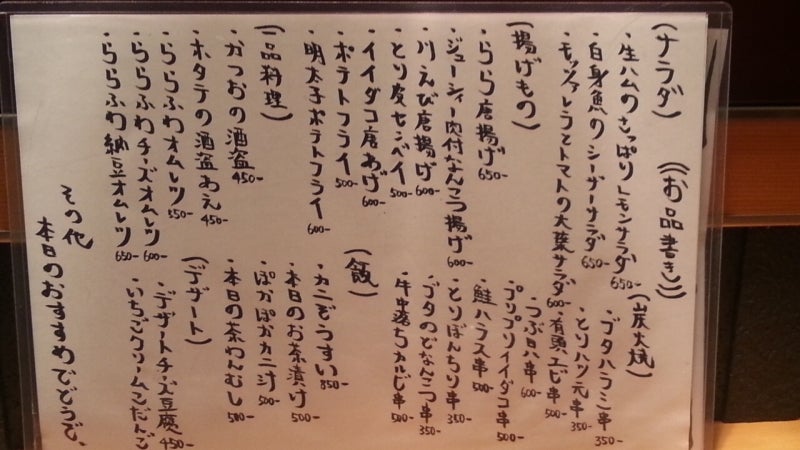 (((お品書き)))
(サラダ)
・生ハムのさっぱりレモンサラダ 650-
・白身魚のシーザーサラダ 650-
・モッツァレラとトマトの大葉サラダ 600-
(揚げもの)
・らら唐揚げ 650-
・ジューシィー肉付なんこつ揚げ 600-
・川えび唐揚げ 600-
・とり皮センベイ 500-
・イイダコ唐あげ 600-
・ポテトフライ 500-
・明太子ポテトフライ 600-
(一品料理)
・かつおの酒盗 450-
・ホタテの酒盗あえ 450-
・ららふわオムレツ 550-
・ららふわチーズオムレツ 600-
・ららふわ納豆オムレツ 650-
(炭火焼)
・ブタハラミ串 350-
・とりハツ元串 350-
・有頭エビ串 500-
・つぶ貝串 600-
・プリプリイイダコ串 500-
・鮭ハラス串 500-
・とりぼんちり串 350-
・ブタのどなんこつ串 350-
・牛中落ちカルビ串 500-
(飯)
・カニぞうすい 850-
・本日のお茶漬け 500-
・ぽかぽかカニ汁 500-
・本日の茶わんむし 500-
(デザート)
・デザートチーズ豆腐 450-
・いちごクリームごだんご
その他
本日のおすすめでどうで、